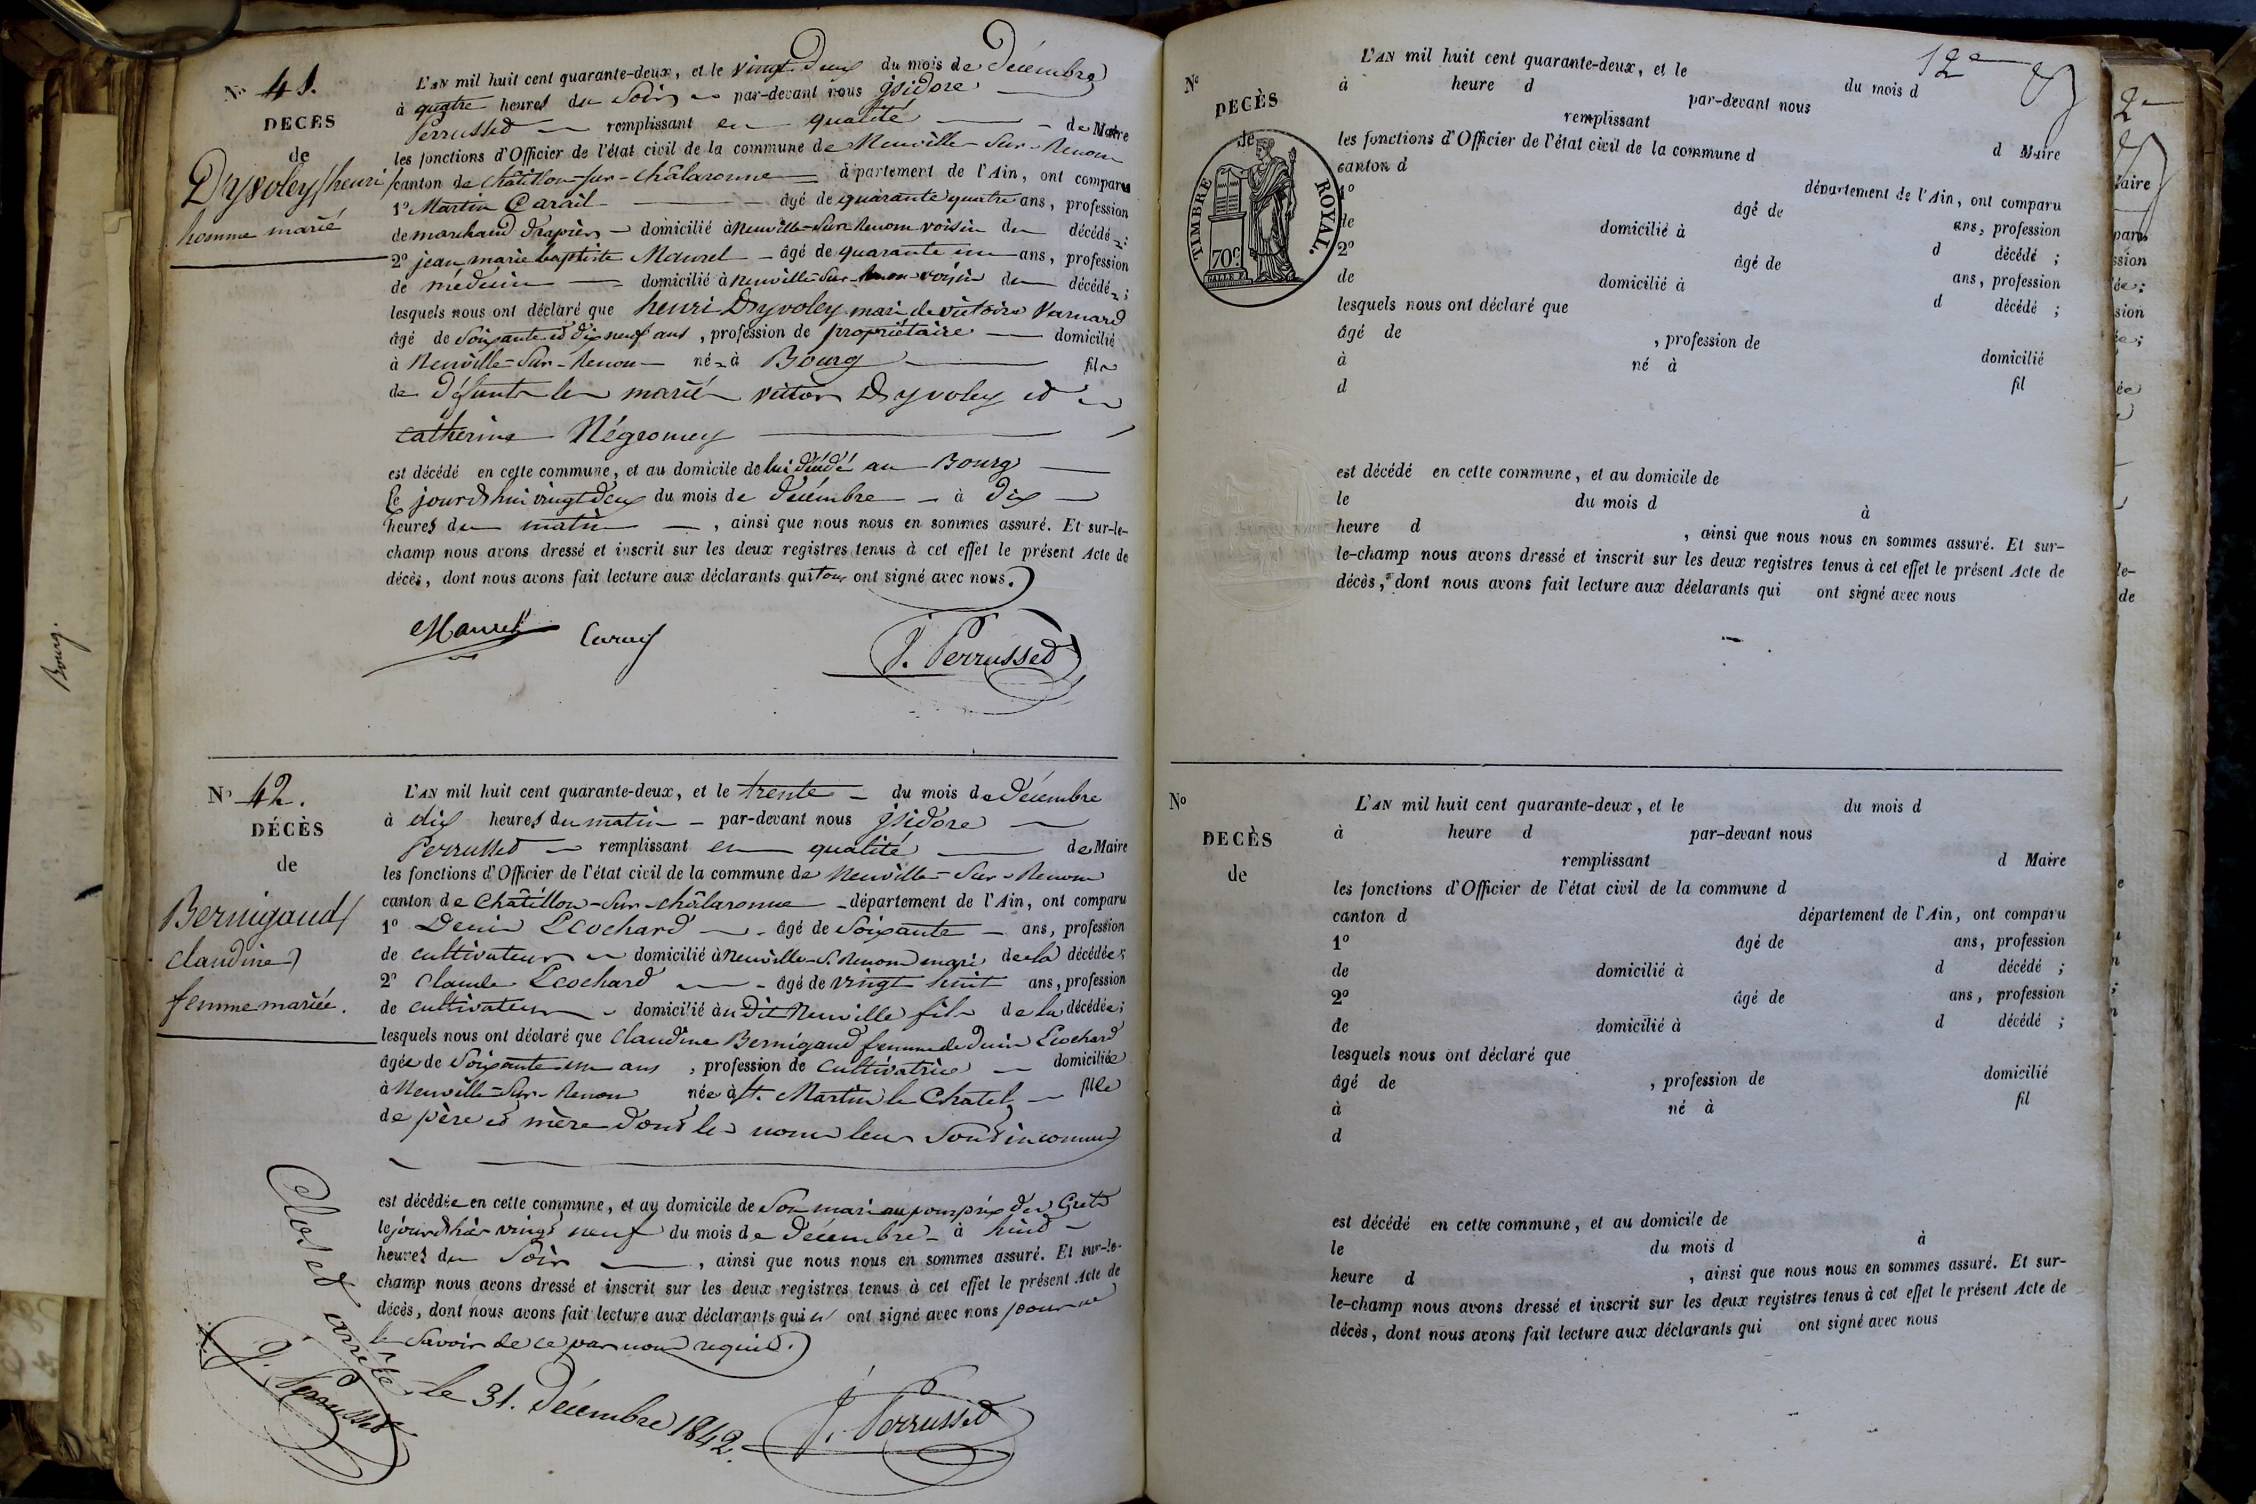 N° 41.
DECES
de
Dyvoley henri
homme marié
L'AN mil huit cent quarante-deux, et le vingt deux du mois de Décembre
à quatre heures du Soir par-devant nous jsidore
Perrussed remplissant en qualité de Maire
les fonctions d'Officier de l'état civil de la commune de Neuville-Sur-Renom
canton de Châtillon-sur-châlaronne département de l'Ain, ont comparu
1° Martin Carail âgé de quarante quatre ans, profession
de marchand drapier domicilié à Neuville-Sur-Renom voisin du décédé;
2° jean marie baptiste Maurel âgé de quarante un ans, profession
de médecin domicilié à Neuville-Sur-Renom voisin du décédé;
lesquels nous ont déclaré que henri Dyvoley mari de victoire Varnard
âgé de Soixante et dix neuf ans, profession de propriétaire domicilié
à Neuville-Sur-Renom né à Bourg fils
de défunts les mariés victor Dyvoley et
Catherine Négromey
est décédé en cette commune, et au domicile de lui décédé au Bourg
Le jourdhui vingt deux du mois de décembre à dix
heures du matin, ainsi que nous nous en sommes assuré. Et sur-le-
champ nous avons dressé et inscrit sur les deux registres tenus à cet effet le présent Acte de
décès, dont nous avons fait lecture aux déclarants qui tous ont signé avec nous.
Maurel Carail J. Perrussed
N° 42.
DÉCÈS
de
Bernigaud
claudine
femme mariée.
L'AN mil huit cent quarante-deux, et le trente du mois de décembre
à dix heures du matin par-devant nous jsidore
Perrussed remplissant en qualité de Maire
les fonctions d'Officier de l'état civil de la commune de Neuville-Sur-Renom
canton de Châtillon-Sur-châlaronne département de l'Ain, ont comparu
1° Denis Leochard âgé de Soixante ans, profession
de cultivateur domicilié à Neuville-S. Renom mari de la décédée;
2° Claude Leochard âgé de vingt huit ans, profession
de cultivateur domicilié au dit Neuville fils de la décédée;
lesquels nous ont déclaré que Claudine Bernigaud femme de Denis Leochard
âgée de Soixante un ans, profession de cultivatrice domiciliée
à Neuville-Sur-Renom née à St. Martin le Chatel fille
de père et mère dont les noms leur Sont inconnus
est décédée en cette commune, et au domicile de Son mari au
le jourdhier vingt neuf du mois de Décembre à huit
heures du Soir, ainsi que nous nous en sommes assuré. Et sur-le-
champ nous avons dressé et inscrit sur les deux registres tenus à cet effet le présent Acte de
décès, dont nous avons fait lecture aux déclarants qui n' ont signé avec nous pour ne
le Savoir de ce par nous requis.
Clos et arrêté le 31. Décembre 1842.
J. Perrussed J. Perrussed
Bourg.
12e
N°
DECÈS
de
TIMBRE ROYAL.
70c.
L'AN mil huit cent quarante-deux, et le du mois d
à heure d par-devant nous
remplissant d Maire
les fonctions d'Officier de l'état civil de la commune d
canton d département de l'Ain, ont comparu
1° âgé de ans, profession
de domicilié à d décédé ;
2° âgé de ans, profession
de domicilié à d décédé ;
lesquels nous ont déclaré que
âgé de , profession de domicilié
à né à fil
d
est décédé en cette commune, et au domicile de
le du mois d à
heure d , ainsi que nous nous en sommes assuré. Et sur-
le-champ nous avons dressé et inscrit sur les deux registres tenus à cet effet le présent Acte de
décès, dont nous avons fait lecture aux déclarants qui ont signé avec nous
N°
DECÈS
de
L'AN mil huit cent quarante-deux, et le du mois d
à heure d par-devant nous
remplissant d Maire
les fonctions d'Officier de l'état civil de la commune d
canton d département de l'Ain, ont comparu
1° âgé de ans, profession
de domicilié à d décédé ;
2° âgé de ans, profession
de domicilié à d décédé ;
lesquels nous ont déclaré que
âgé de , profession de domicilié
à né à fil
d
est décédé en cette commune, et au domicile de
le du mois d à
heure d , ainsi que nous nous en sommes assuré. Et sur-
le-champ nous avons dressé et inscrit sur les deux registres tenus à cet effet le présent Acte de
décès, dont nous avons fait lecture aux déclarants qui ont signé avec nous